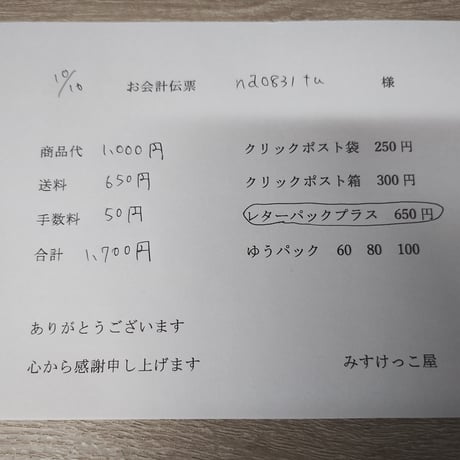 10/10 お会計伝票 na0831tu 様
商品代 1,000円 クリックポスト袋 250円
送料 650円 クリックポスト箱 300円
手数料 50円 レターパックプラス 650円
合計 1,700円 ゆうパック 60 80 100
ありがとうございます
心から感謝申し上げます みすけっこ屋